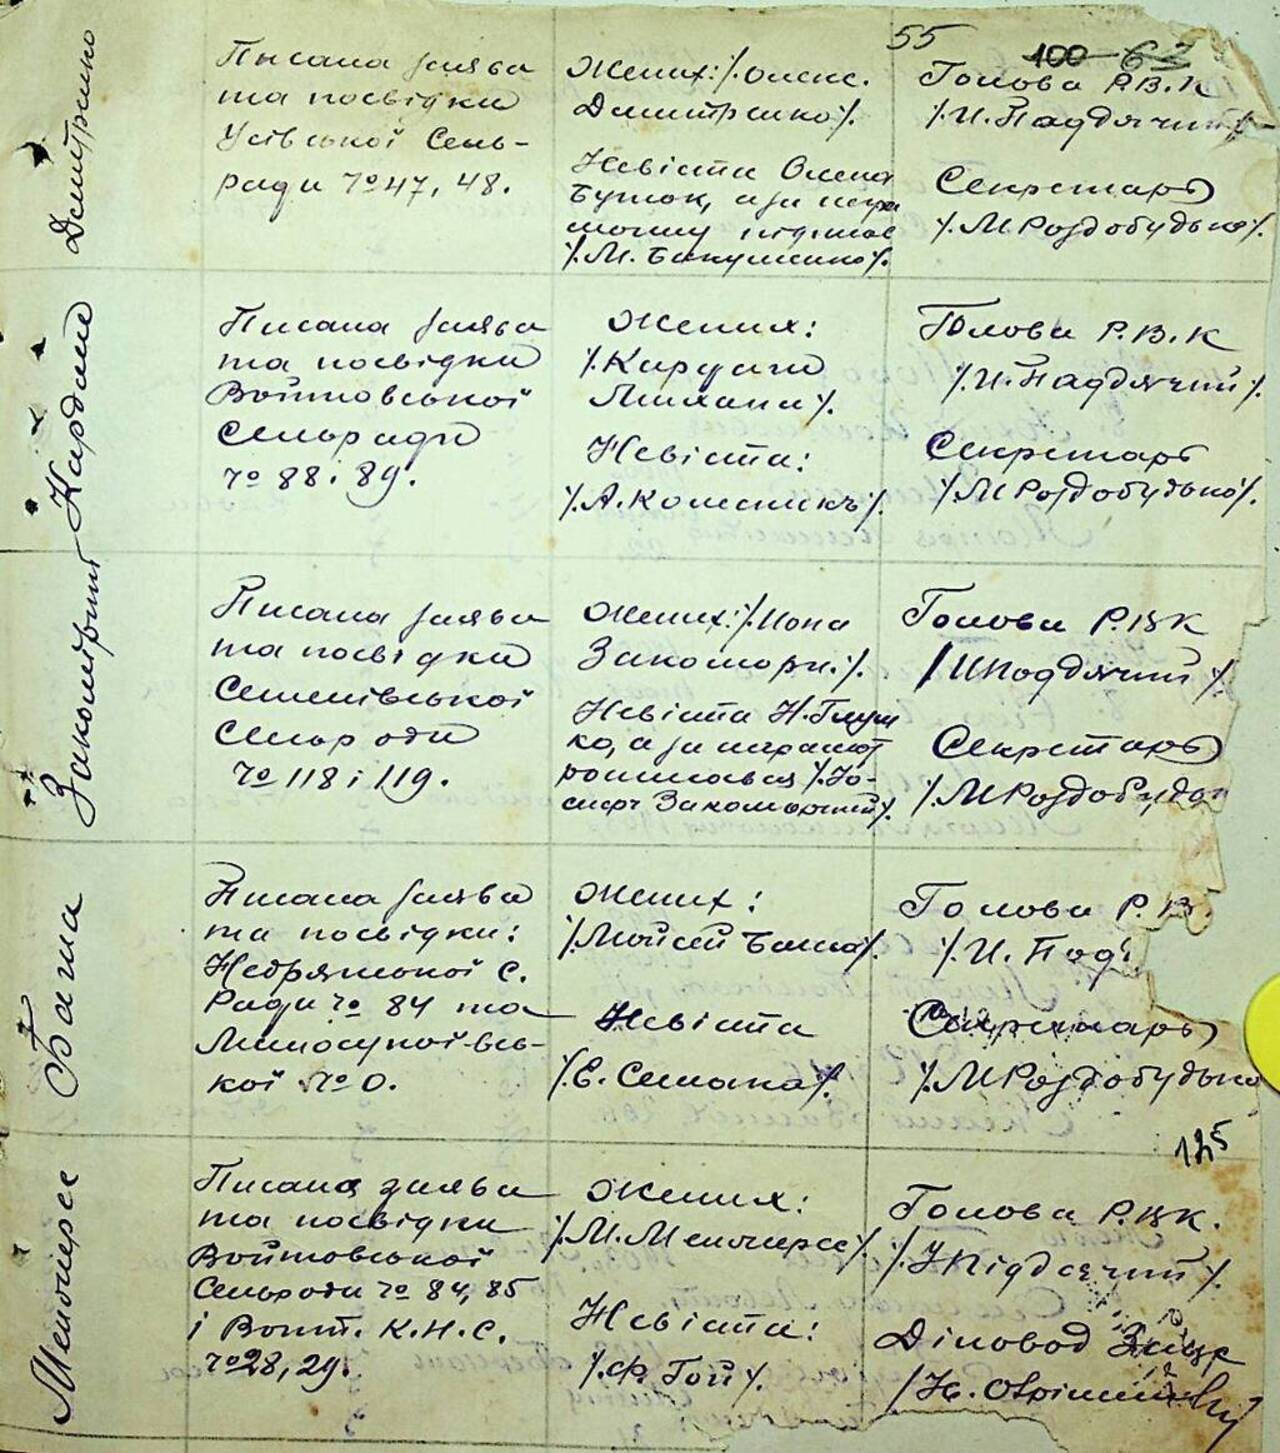 55
100 63
Дмитренко
Писана заява
та посвідки
Усівської Сель-
ради № 47, 48.
Жених: /. Олекс.
Дмитренко /.
Невіста Олена
Буток, а за негра
мотну підписав
/. М. Бакуменко /.
Голова Р.В.К
/. И. Паддячий /.
Секретарь
/. М Роздобудько /.
Кардаш
Писана заява
та посвідки
Войтовської
Сельради
№ 88 і 89.
Жених:
/. Кардаш
Михайл /.
Невіста:
/. А. Колесникъ /.
Голова Р.В.К
/. И. Паддячий /.
Секретарь
/. М Роздобудько /.
Закоморний
Писана заява
та посвідки
Семенівської
Сельради
№ 118 і 119.
Жених: /. Иона
Закоморн. /.
Невіста Н. Глущ
ко, а за неграмот
росписався /. Іо-
сиф Закоморний /.
Голова Р.ВК
/ И Поддячий /.
Секретарь
/. М Роздобудь
Баша
Писана заява
та посвідки:
Недрянської С.
Ради № 84 та
кої № 0.
Жених:
/. Мойсей Баша /.
Невіста
/. Е. Семака /.
Голова Р. В.
/. И. Подд
Секретарь
/. М Роздобудько
125
Мелоперес
Писана заява
та посвідки
Войтовської
Сельради № 84, 85
і Войт. К.Н.С.
№ 28, 29.
Жених:
/. М. Мелоперес /.
Невіста:
/. Ф. Гой /.
Голова Р.ВК.
/. И Піддячий /.
Діловод